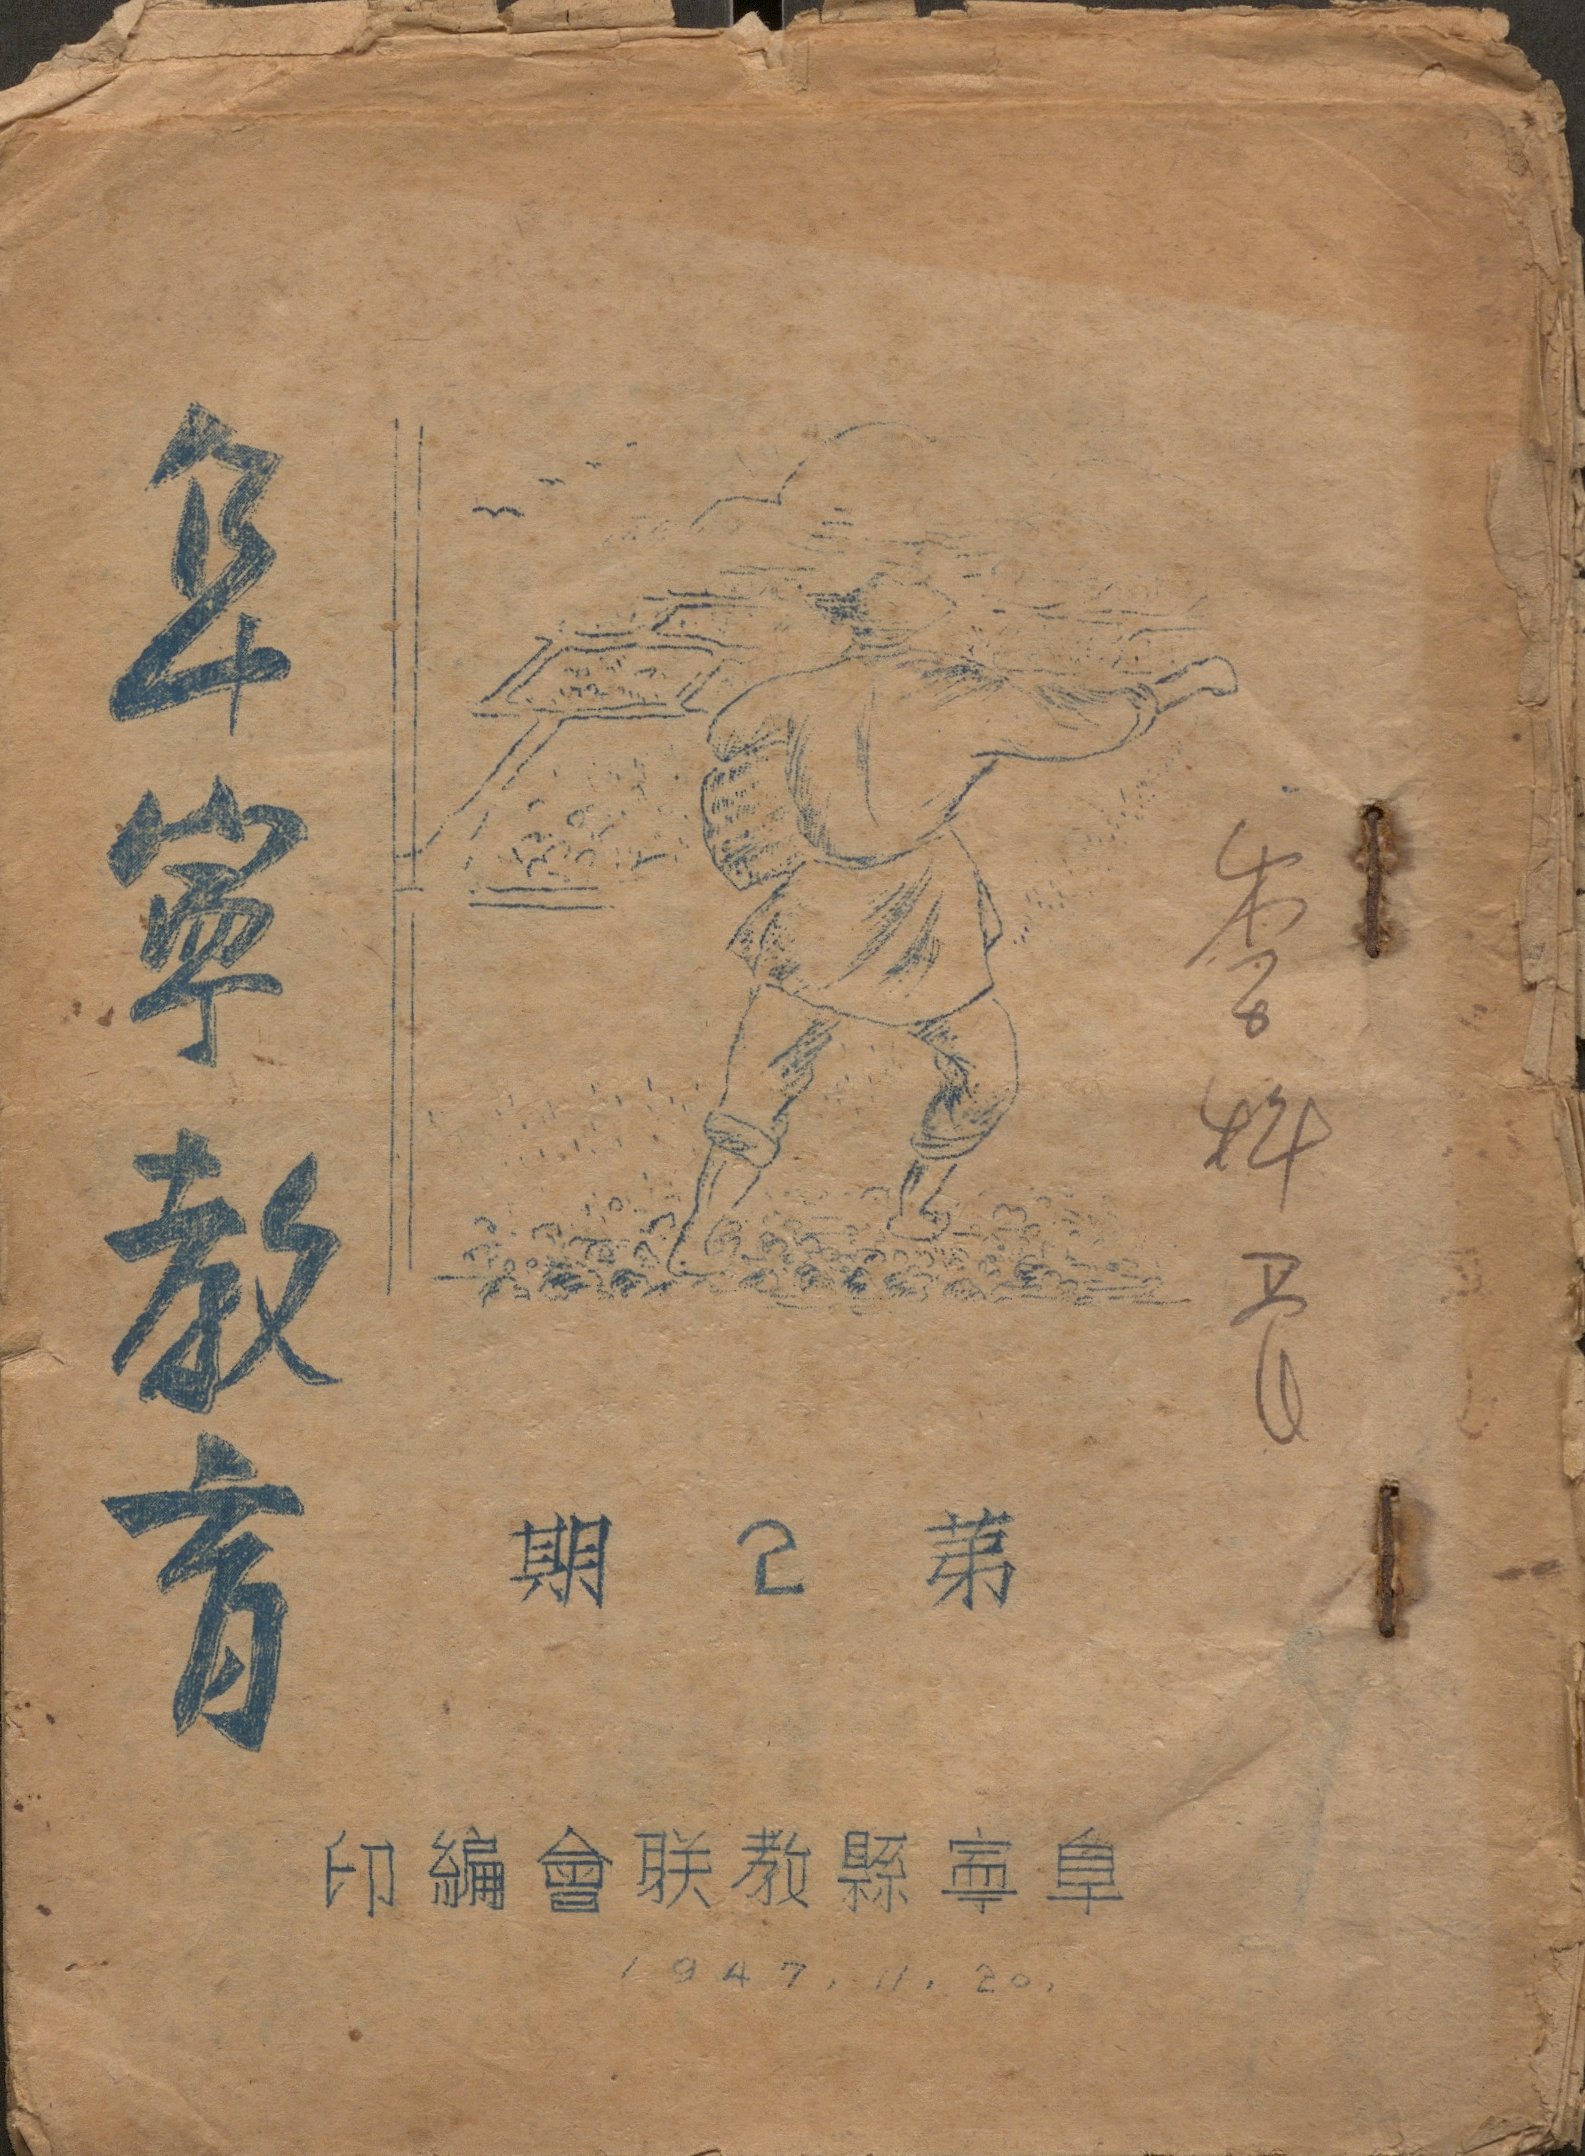 阜寧教育
李科長
第2期
阜寧縣教联會編印
1947.11.20.